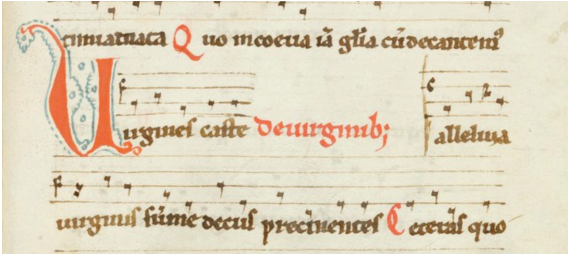 Quo mcoeua iā gl̄ia cū decantem⁹
Uirgines caste De uirginib; alleluia
uirginis sūme decus precinentes Ceteras quo